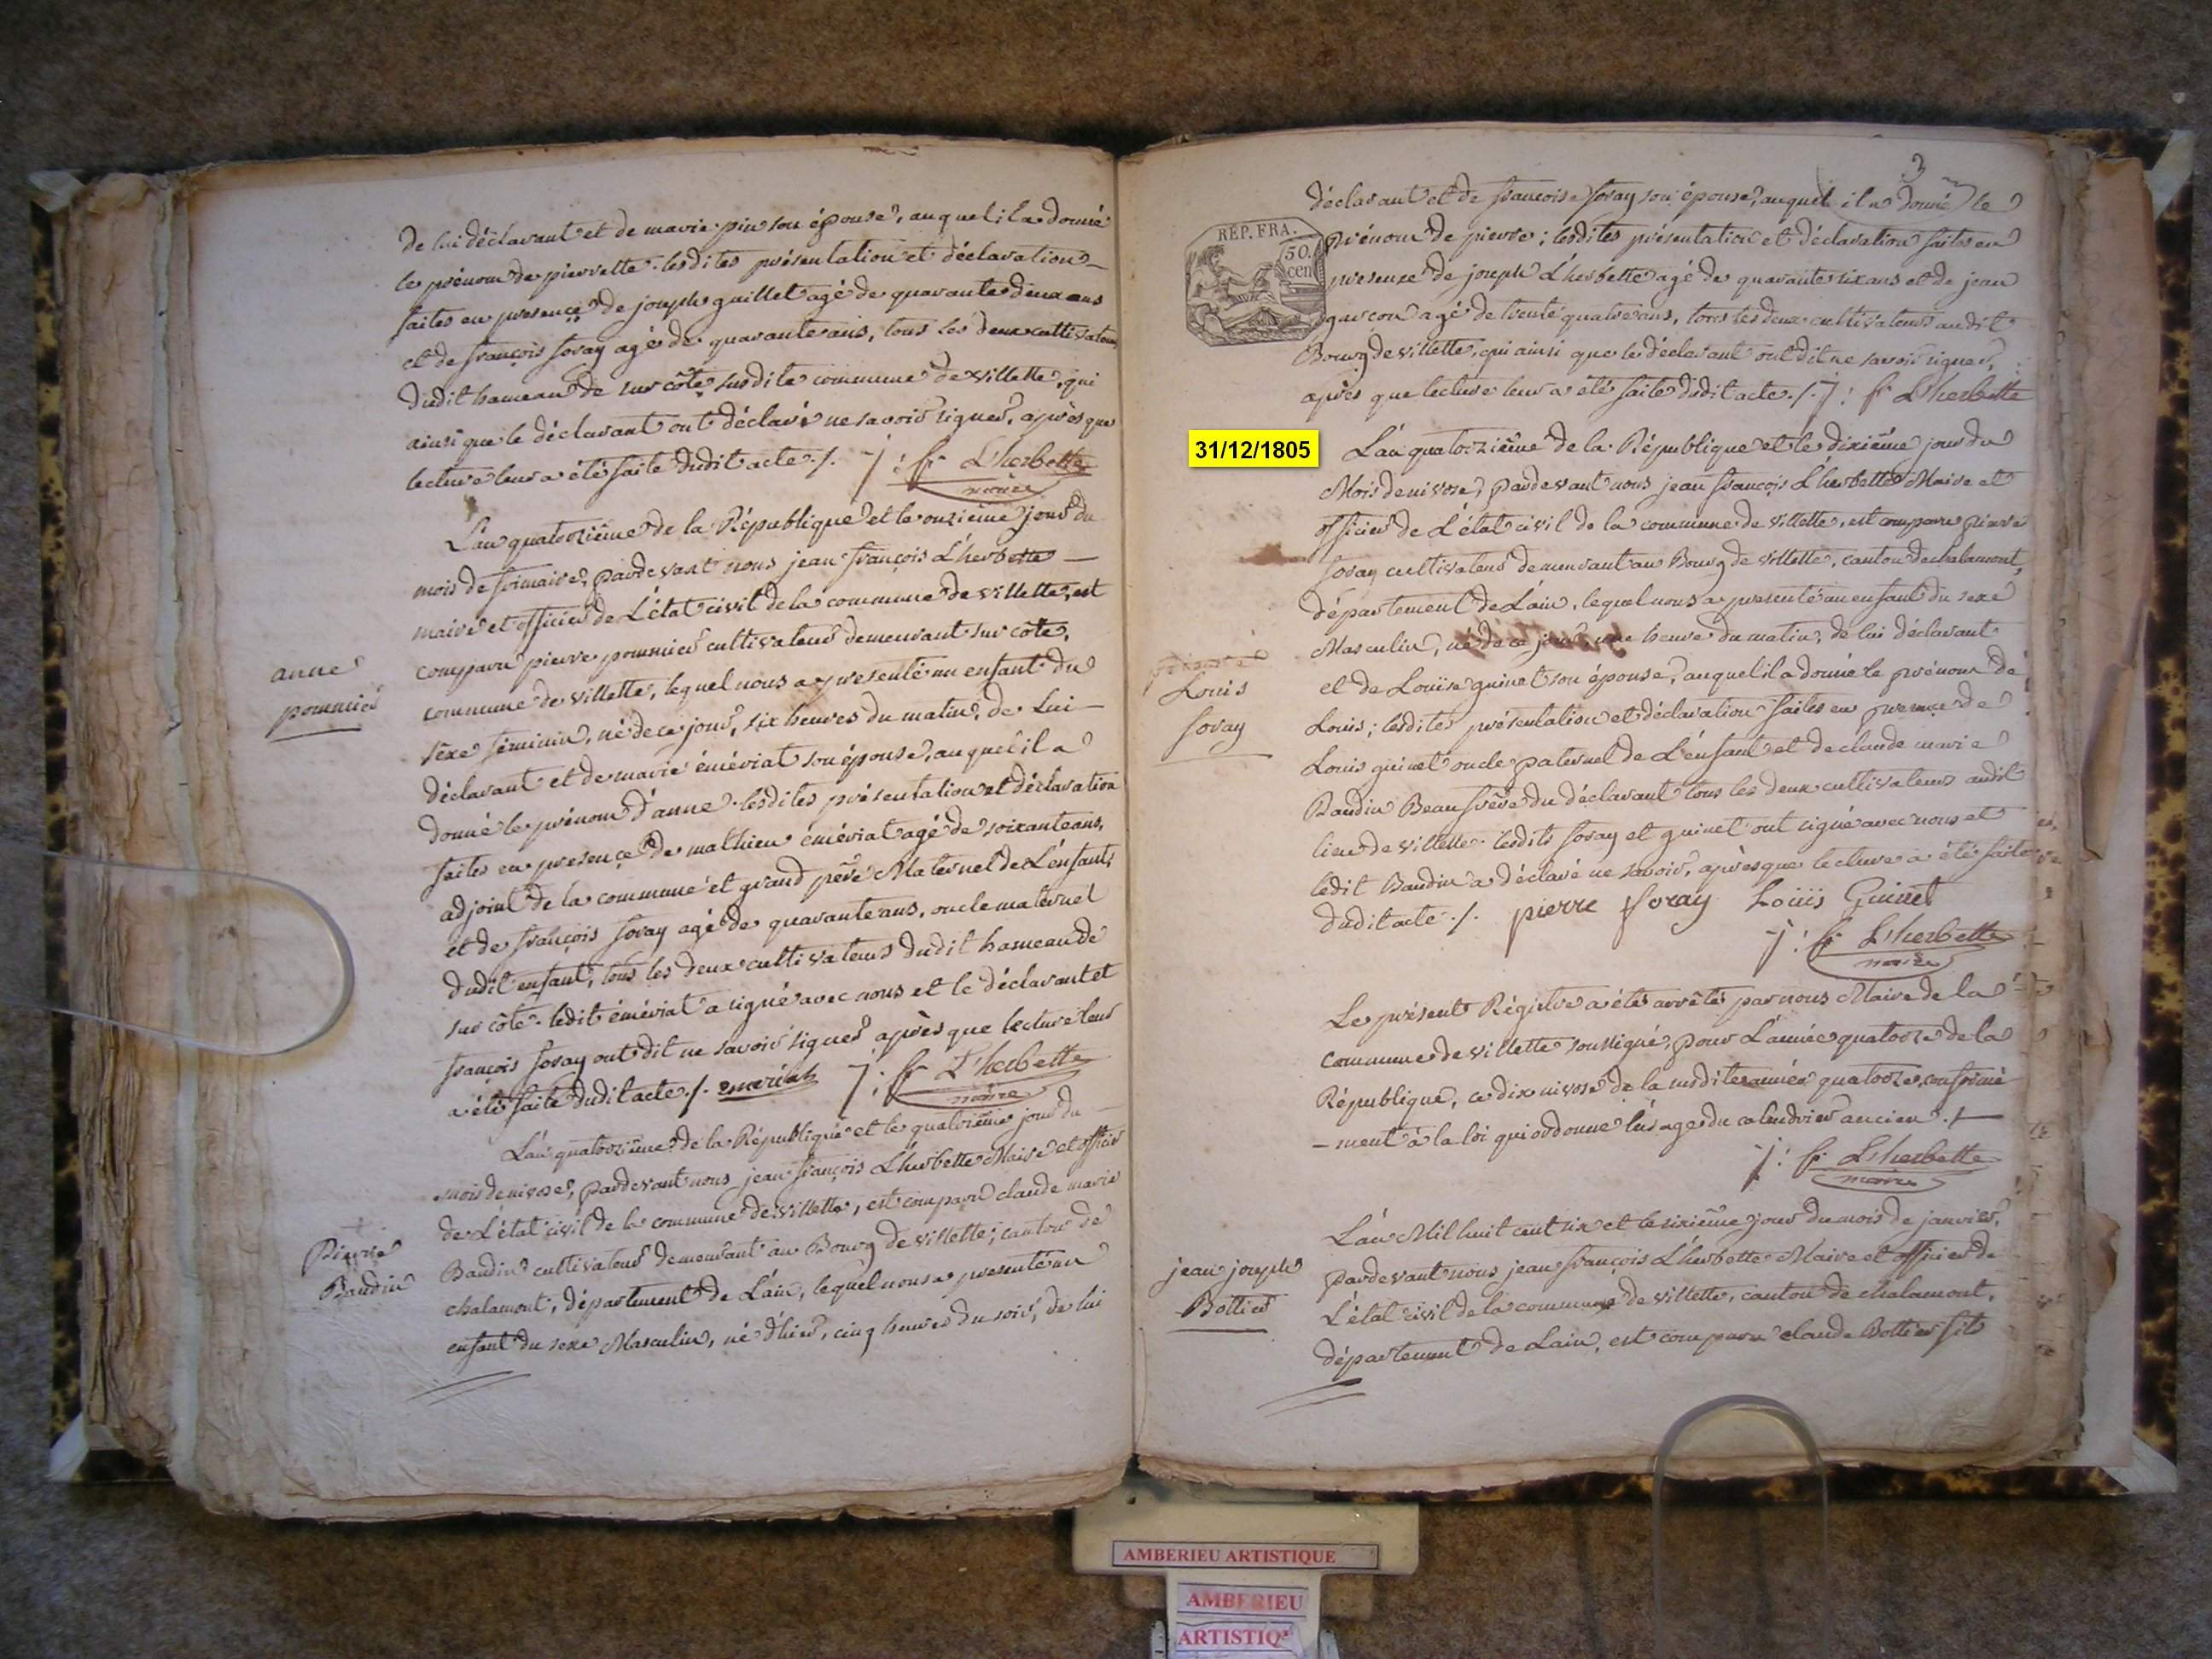 de lui déclarant et de marie pin son épouse, auquel il a donné
le prénom de pierrette. lesdites présentation et déclaration
faites en presence de joseph guillet agé de quarante deux ans
et de françois foray agé de quarante ans, tous les deux cultivateurs
dudit hameau de sur côte susdite commune de villette, qui
ainsi que le déclarant ont déclaré ne savoir signer, après que
lecture leur a été faite dudit acte ./. j: f: L'herbette
maire
L'an quatorzième de la République et le onzième jour du
mois de frimaire, pardevant nous jean françois L'herbette
maire et officier de L'état civil de la commune de villette, est
comparu pierre pommier cultivateur demeurant sur côte,
commune de villette, lequel nous a presenté un enfant du
sèxe féminin, né de ce jour, six heures du matin, de Lui
déclarant et de marie émériat son épouse, auquel il a
donné le prénom d'anne. lesdites présentation et déclaration
faites en presence de mathieu émériat agé de soixante ans,
adjoint de la commune et grand père Maternel de L'enfant,
et de françois foray agé de quarante ans, oncle maternel
dudit enfant, tous les deux cultivateurs dudit hameau de
sur côte. ledit émériat a signé avec nous et le déclarant et
françois foray ont dit ne savoir signer après que lecture leur
a été faite dudit acte ./. emeriat j: f: L'herbette
maire
anne
pommier
L'an quatorzième de la République et le quatrième jour du
mois de nivose, pardevant nous jean françois L'herbette Maire et officier
de L'état civil de la commune de villette, est comparu claude marie
Baudin cultivateur demeurant au Bourg de villette, canton de
chalamont, département de L'ain, lequel nous a presenté un
enfant du sexe Masculin, né d'hier, cinq heures du soir, de lui
Pierre
Baudin
3
déclarant et de françoise foray son épouse, auquel il a donné le
prénom de pierre; lesdites présentation et déclaration faites en
presence de joseph L'herbette agé de quarante six ans et de jean
garcon agé de trente quatre ans, tous les deux cultivateurs audit
Bourg de villette, qui ainsi que le déclarant ont dit ne savoir signer,
après que lecture leur a été faite dudit acte ./. j: f: L'herbette
RÉP. FRA.
50
cen
31/12/1805
L'an quatorzième de la République et le dixième jour du
Mois de nivose, pardevant nous jean françois L'herbette Maire et
officier de L'état civil de la commune de villette, est comparu pierre
foray cultivateur demeurant au Bourg de villette, canton de chalamont,
département de L'ain, lequel nous a presenté un enfant du sexe
Masculin, né de ce jour une heure du matin, de lui déclarant
et de Louise guinet son épouse, auquel il a donné le prénom de
Louis; lesdites présentation et déclaration faites en presence de
Louis guinet oncle paternel de L'enfant et de claude marie
Baudin Beau frère du déclarant tous les deux cultivateurs audit
lieu de villette. lesdits foray et guinet ont signé avec nous et
ledit Baudin a déclaré ne savoir, après que lecture a été faite
dudit acte ./. pierre foray Louis Guinet
j: f: L'herbette
maire
Louis
foray
Le présent Régistre a été arrêté par nous Maire de la
commune de villette soussigné, pour L'année quatorze de la
République, ce dix nivose de la susdite année quatorze, conformé
-ment à la loi qui ordonne l'usage du calendrier ancien ./.
j: f: L'herbette
maire
L'an Mil huit cent six et le sixième jour du mois de janvier,
pardevant nous jean françois L'herbette Maire et officier de
L'état civil de la commune de villette, canton de chalamont,
département de L'ain, est comparu claude Bottier fils
jean joseph
Bottier
AMBERIEU ARTISTIQUE
AMBERIEU
ARTISTIQ